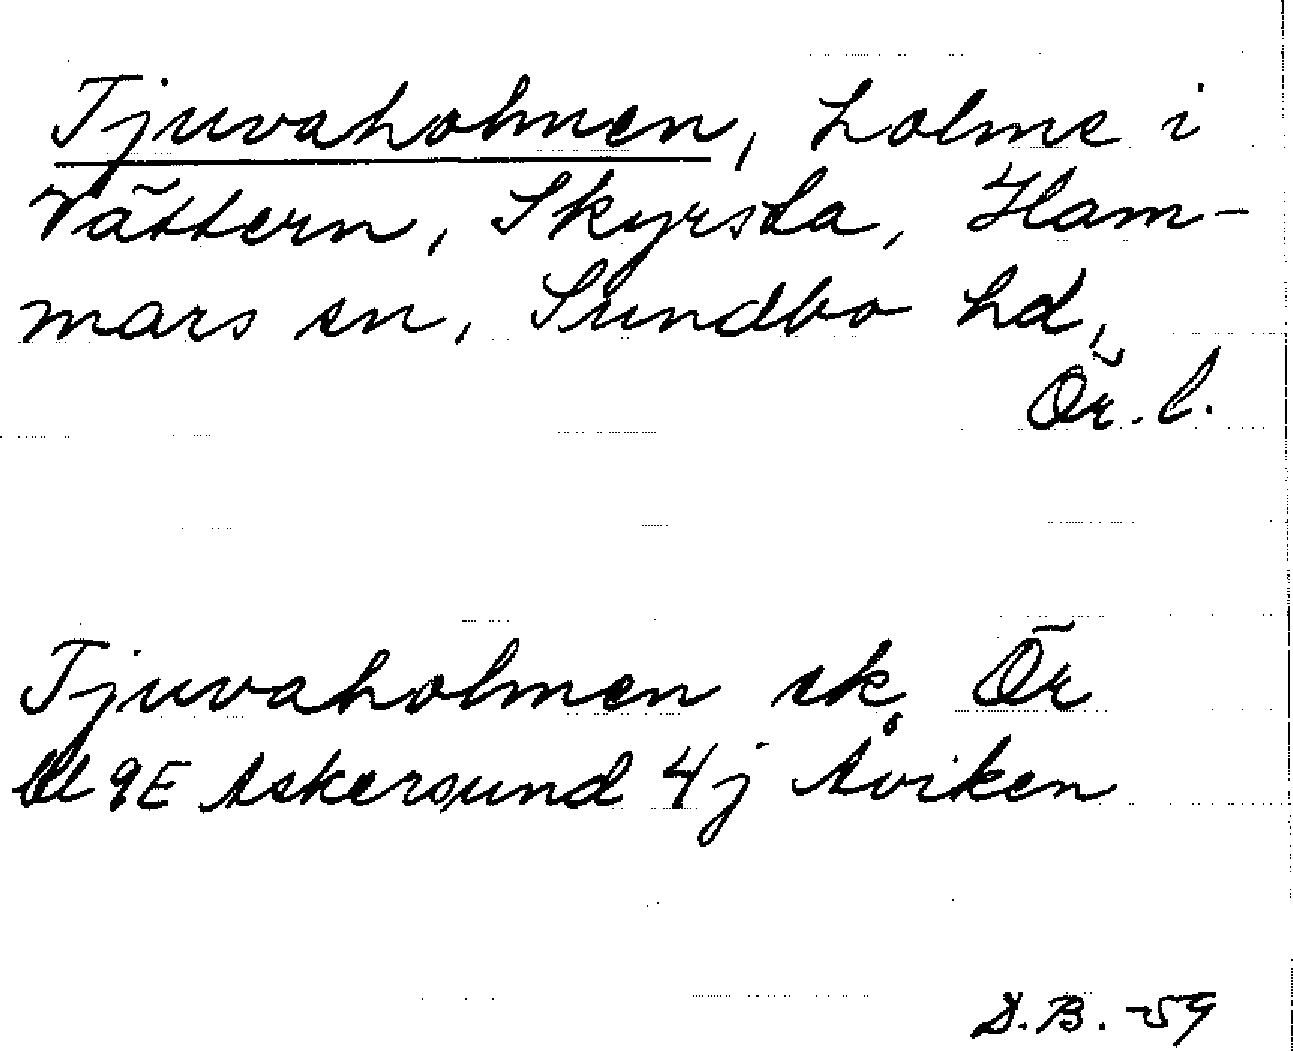 Tjuvaholmen, holme i
Vättern, Skyrsta, Ham-
mars sn, Sundbo hd,
Ör. l.
Tjuvaholmen ek Ör
bl 9E Askersund 4j Åviken
D.B. -59